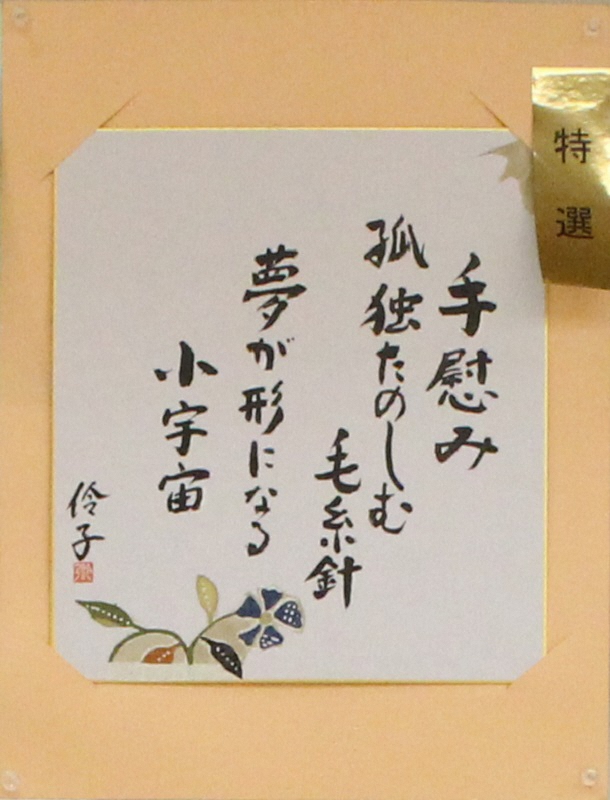 特選
手慰み
孤独たのしむ
毛糸針
夢が形になる
小宇宙
伶子